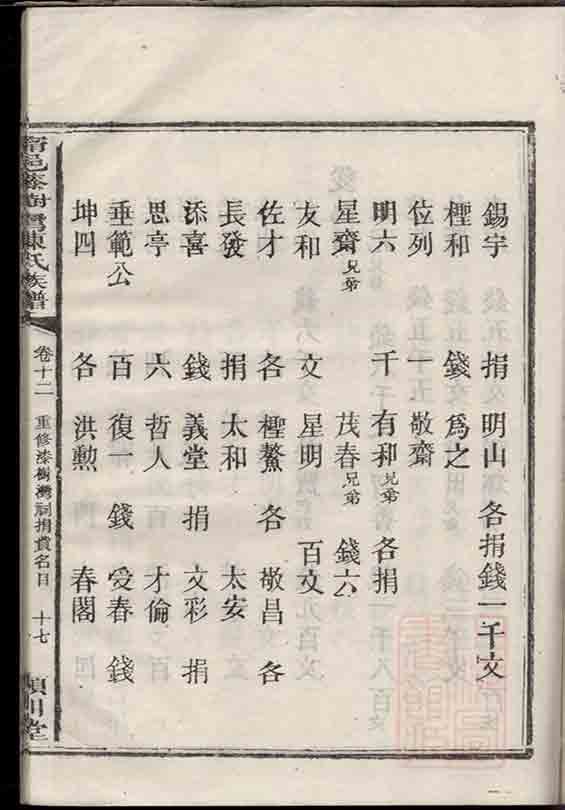 錫宇 捐 明山 各捐錢一千文
檉和 錢 為之
位列 一 敬齋
明六 千 有抑兄弟 各捐
星齋兄弟 茂春兄弟 錢六
友和 文 星明 百文
佐才 各 檉鰲 各 敬昌 各
長發 捐 太和 太安
添喜 錢 義堂 捐 文彩 捐
思亭 六 哲人 才倫
垂範公 百 復一 錢 受春 錢
坤四 各 洪勲 春閣
甯邑漆樹灣陳氏族譜 卷十二 重修漆樹灣祠捐貲名目 十七 潁川堂